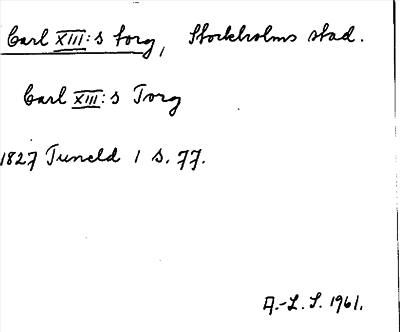 Carl XIII:s torg, Stockholms stad.
Carl XIII:s Torg
1827 Tuneld 1 s. 77.
A.-L. S. 1961.